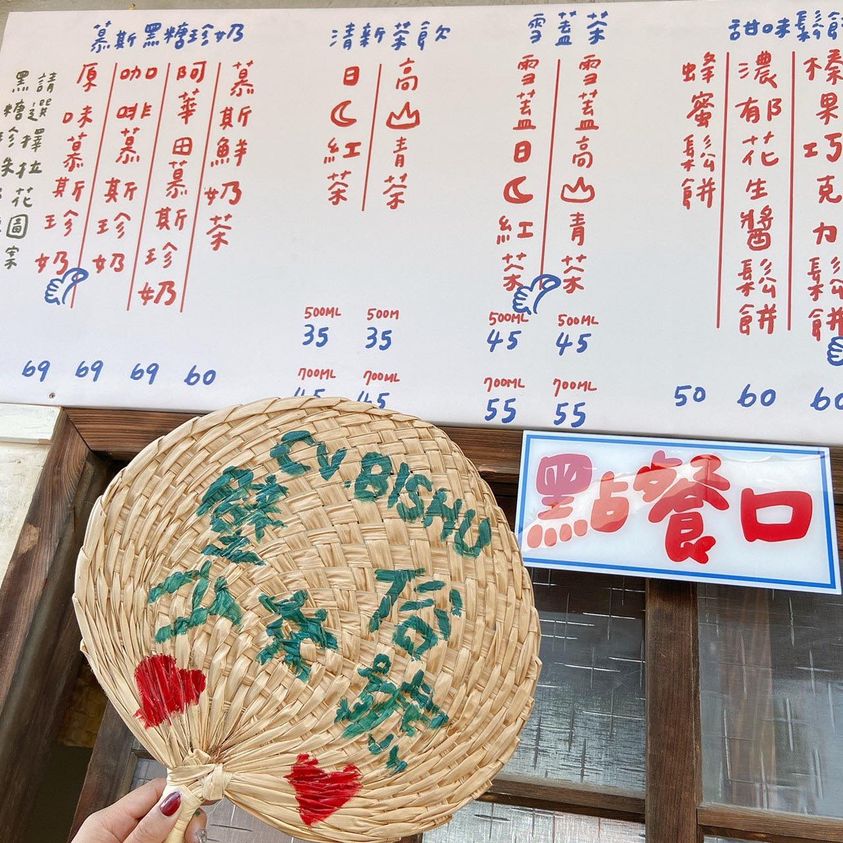 慕斯黑糖珍奶
慕斯鮮奶茶
阿華田慕斯珍奶
咖啡慕斯珍奶
原味慕斯珍奶
請選擇拉花圖案
69 69 69 60
清新茶飲
高山青茶
日月紅茶
500ML 500M
35 35
700ML 700ML
45 45
雪蓋茶
雪蓋高山青茶
雪蓋日月紅茶
500ML 500ML
45 45
700ML 700ML
55 55
甜味鬆餅
榛果巧克力鬆餅
濃郁花生醬鬆餅
蜂蜜鬆餅
50 60 60
點餐口
CV.BISHU